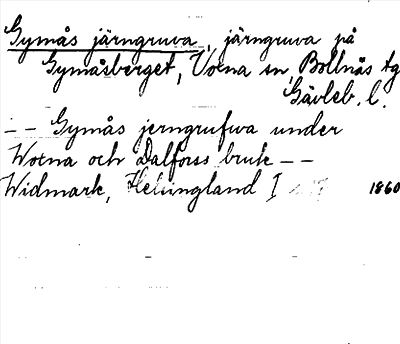 Gymås järngruva, järngruva på
Gymåsberget, Voxna sn, Bollnäs tg
Gävleb. l.
– – Gymås jerngrufwa under
Woxna och Dalfors bruk – –
Widmark, Helsingland I
1860